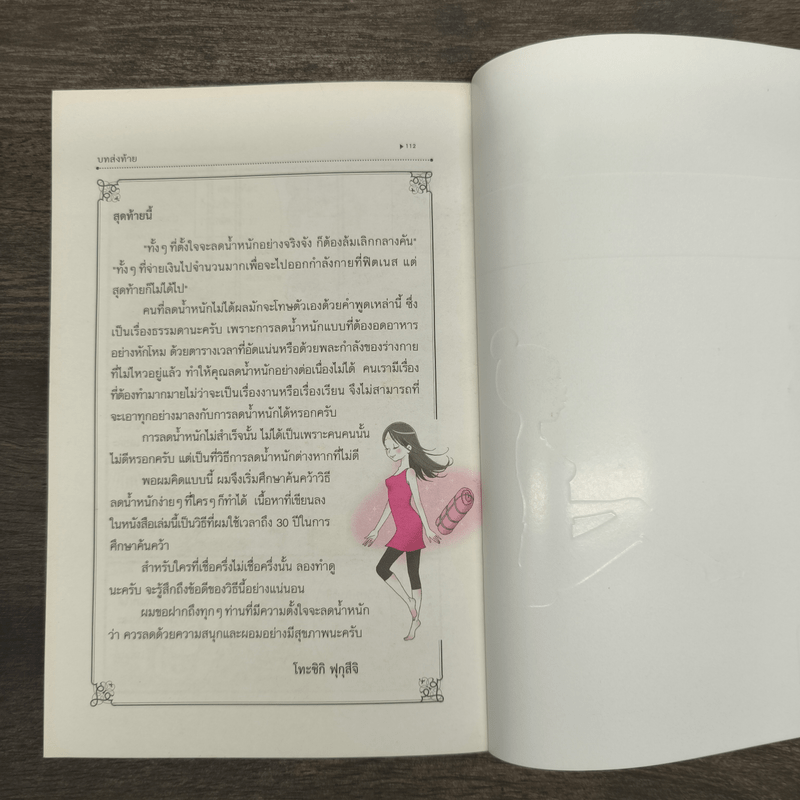 บทส่งท้าย
113
สุดท้ายนี้
"ทั้งๆ ที่ตั้งใจจะลดน้ำหนักอย่างจริงจัง ก็ต้องล้มเลิกกลางคัน"
"ทั้งๆ ที่จ่ายเงินไปจำนวนมากเพื่อจะไปออกกำลังกายที่ฟิตเนส แต่
สุดท้ายก็ไม่ได้ไป"
คนที่ลดน้ำหนักไม่ได้ผลมักจะโทษตัวเองด้วยคำพูดเหล่านี้ ซึ่ง
เป็นเรื่องธรรมดานะครับ เพราะการลดน้ำหนักแบบที่ต้องอดอาหาร
อย่างหักโหม ด้วยตารางเวลาที่อัดแน่นหรือด้วยพละกำลังของร่างกาย
ที่ไม่ไหวอยู่แล้ว ทำให้คุณลดน้ำหนักอย่างต่อเนื่องไม่ได้ คนเรามีเรื่อง
ที่ต้องทำมากมายไม่ว่าจะเป็นเรื่องงานหรือเรื่องเรียน จึงไม่สามารถที่
จะเอาทุกอย่างมาลงกับการลดน้ำหนักได้หรอกครับ
การลดน้ำหนักไม่สำเร็จนั้น ไม่ได้เป็นเพราะคนคนนั้น
ไม่ดีหรอกครับ แต่เป็นที่วิธีการลดน้ำหนักต่างหากที่ไม่ดี
พอผมคิดแบบนี้ ผมจึงเริ่มศึกษาค้นคว้าวิธี
ลดน้ำหนักง่ายๆ ที่ใครๆ ก็ทำได้ เนื้อหาที่เขียนลง
ในหนังสือเล่มนี้เป็นวิธีที่ผมใช้เวลาถึง 30 ปีในการ
ศึกษาค้นคว้า
สำหรับใครที่เชื่อครึ่งไม่เชื่อครึ่งนั้น ลองทำดู
นะครับ จะรู้สึกถึงข้อดีของวิธีนี้อย่างแน่นอน
ผมขอฝากถึงทุกๆ ท่านที่มีความตั้งใจจะลดน้ำหนัก
ว่า ควรลดด้วยความสนุกและผอมอย่างมีสุขภาพนะครับ
โทะชิกิ ฟุกุสึจิ